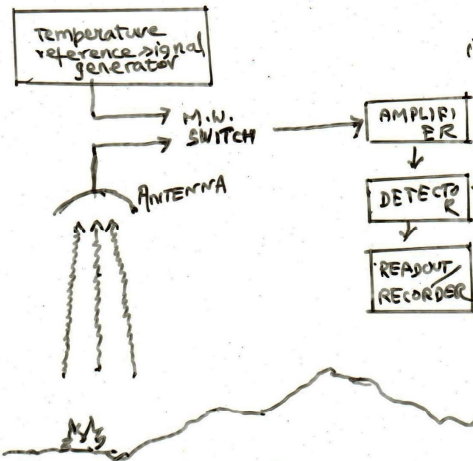 Temperature
reference signal
generator
M.W.
SWITCH
AMPLIFI
ER
ANTENNA
DETECTO
R
READOUT/
RECORDER